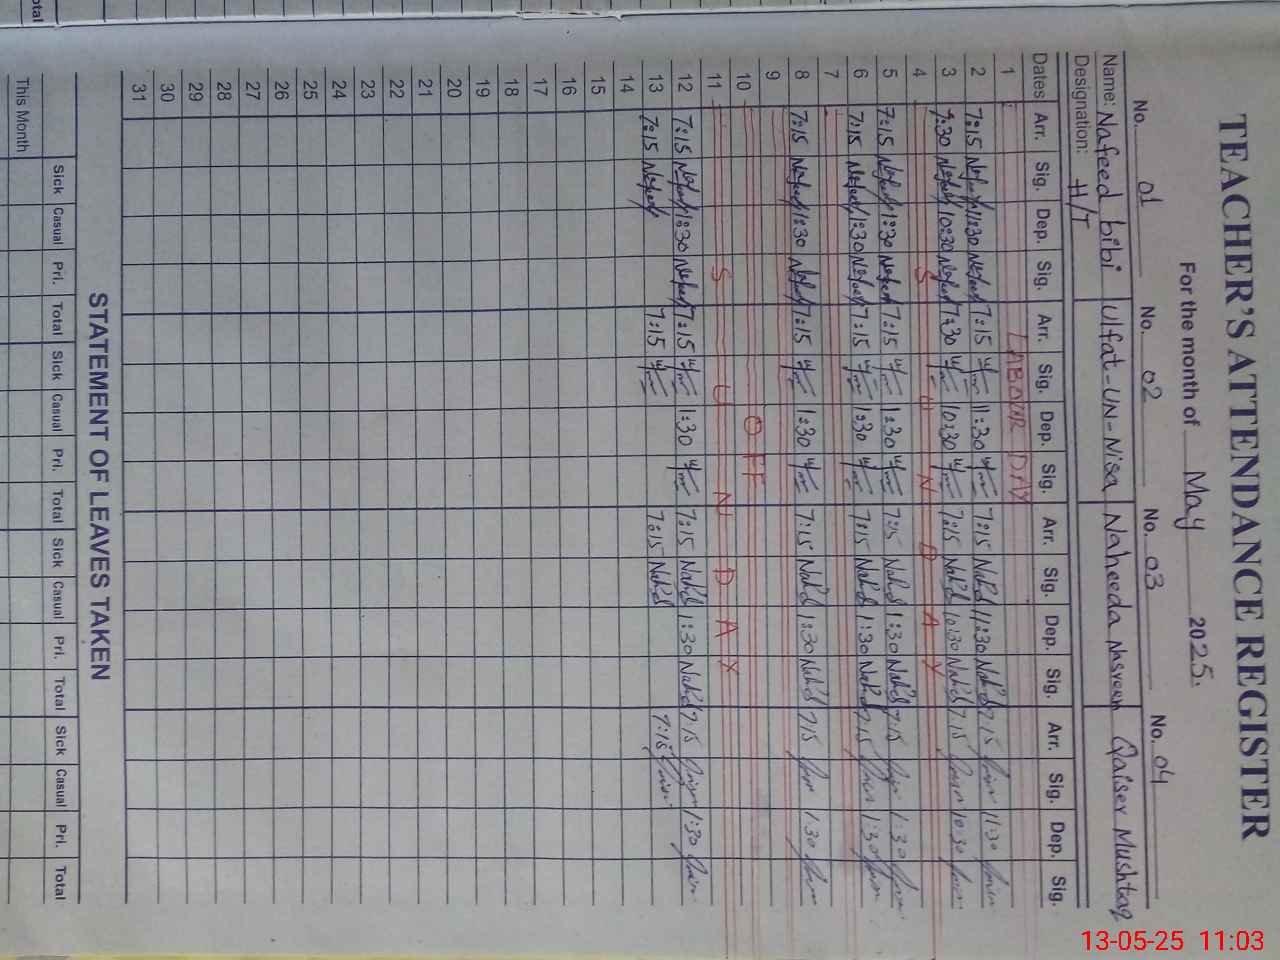 TEACHER'S ATTENDANCE REGISTER
For the month of May 2025.
No. 01 No. 02 No. 03 No. 04
Name: Nafeed bibi Ulfat-UN-Nisa Naheeda Nasreen Qaiser Mushtaq
Designation: H/T
Dates Arr. Sig. Dep. Sig. Arr. Sig. Dep. Sig. Arr. Sig. Dep. Sig. Arr. Sig. Dep. Sig.
1 LABOUR DAY
2 7:15 Nafeed 11:30 Nafeed 7:15 11:30 7:15 Nah'd 11:30 Nah'd 7:15 11:30
3 7:30 Nafeed 10:30 Nafeed 7:30 10:30 7:15 Nah'd 10:30 Nah'd 7:15 10:30
4 SUNDAY
5 7:15 Nafeed 1:30 Nafeed 7:15 1:30 7:15 Nah'd 1:30 Nah'd 7:15 1:30
6 7:15 Nafeed 1:30 Nafeed 7:15 1:30 7:15 Nah'd 1:30 Nah'd 7:15 1:30
7
8 7:15 Nafeed 1:30 Nafeed 7:15 1:30 7:15 Nah'd 1:30 Nah'd 7:15 1:30
9
10 OFF
11 SUNDAY
12 7:15 Nafeed 1:30 Nafeed 7:15 1:30 7:15 Nah'd 1:30 Nah'd 7:15 1:30
13 7:15 Nafeed 7:15 7:15 Nah'd 7:15
14
15
16
17
18
19
20
21
22
23
24
25
26
27
28
29
30
31
STATEMENT OF LEAVES TAKEN
Sick Casual Pri. Total Sick Casual Pri. Total Sick Casual Pri. Total Sick Casual Pri. Total
This Month
otal
13-05-25 11:03